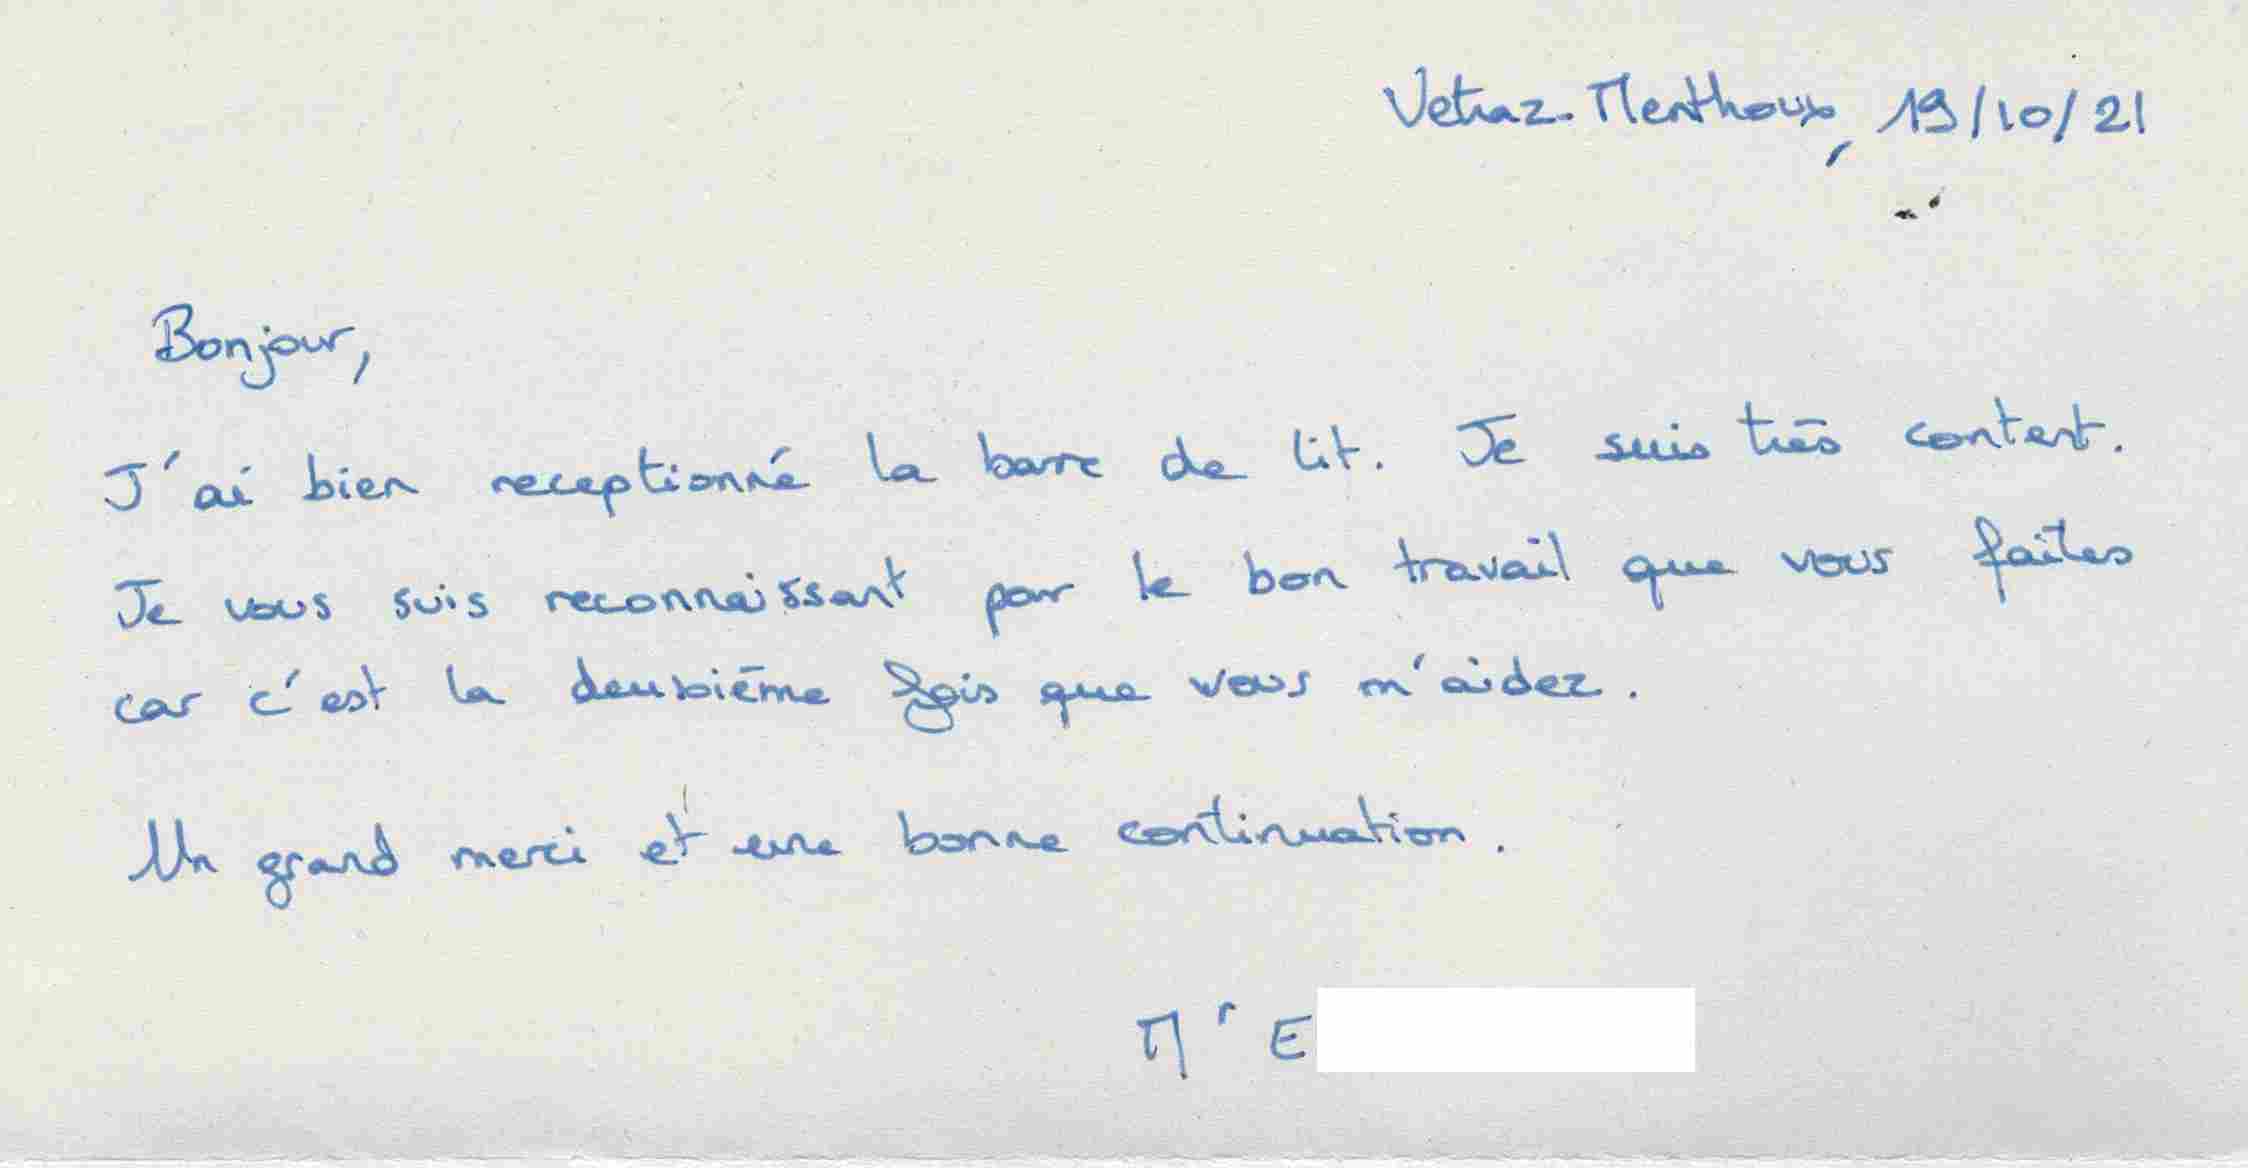 Vetraz-Menthoux, 19/10/21
Bonjour,
J'ai bien receptionné la barre de lit. Je suis très content.
Je vous suis reconnaissant par le bon travail que vous faîtes
car c'est la deuxième fois que vous m'aidez.
Un grand merci et une bonne continuation.
Mr E